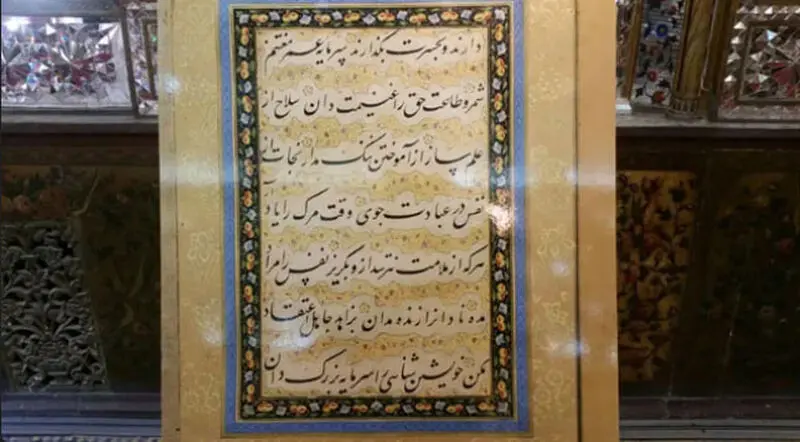 دارند و بحسرت بگذارند سرمایه عمر مغتنم
شمر و طاعت حق را غنیمت دان سلاح از
علم ساز از آموختن ننگ مدار نجات
نفس در عبادت جوی وقت مرگ را یاد آر
هرکه از ملامت نترسد از و بگریز نفس را مراد
مده نادان را زنده مدان بزاهد جاهل اعتقاد
مکن خویشن شناسی را سرمایه بزرگ دان